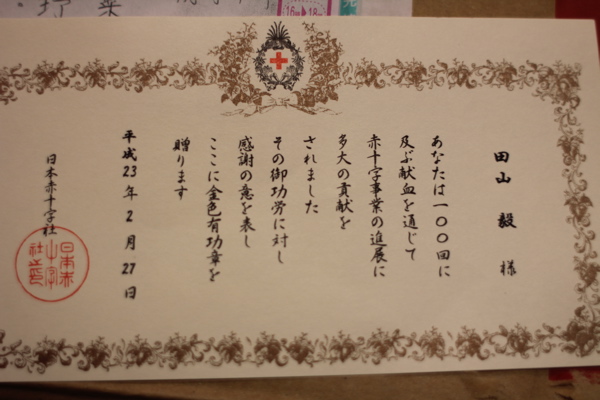 田山 毅 様
あなたは一〇〇回に
及ぶ献血を通じて
赤十字事業の進展に
多大の貢献を
されました
その御功労に対し
感謝の意を表し
ここに金色有功章を
贈ります
平成23年2月27日
日本赤十字社
日本赤
十字
社之印
16時 18時